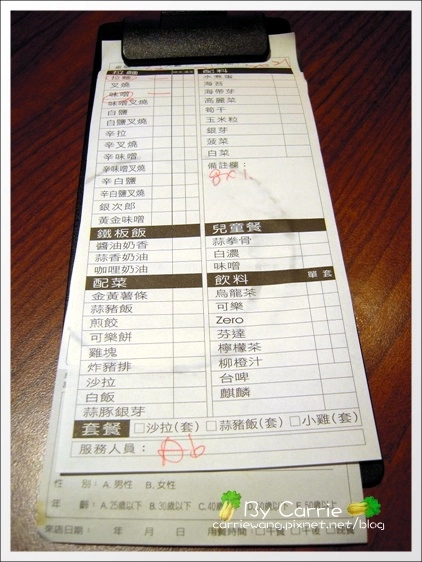 拉麵
拉麵
叉燒
味噌
味噌叉燒
白鹽
白鹽叉燒
辛拉
辛叉燒
辛味噌
辛味噌叉燒
辛白鹽
辛白鹽叉燒
銀次郎
黃金味噌
配料
水煮蛋
海苔
海帶芽
高麗菜
筍干
玉米粒
銀芽
菠菜
白菜
備註欄：
8×1
鐵板飯
醬油奶香
蒜香奶油
咖哩奶油
兒童餐
蒜拳骨
白濃
味噌
配菜
金黃薯條
蒜豬飯
煎餃
可樂餅
雞塊
炸豬排
沙拉
白飯
蒜豚銀芽
飲料 單 套
烏龍茶
可樂
Zero
芬達
檸檬茶
柳橙汁
台啤
麒麟
套餐 □沙拉(套) □蒜豬飯(套) □小雞(套)
服務人員：
性 別： A.男性 B.女性
年 齡： A.25歲以下 B.30歲以下 C.40歲
來店日期： 年 月 日 用餐時間： □午餐 □午後 □晚餐
By Carrie
carriewang.pixnet.net/blog